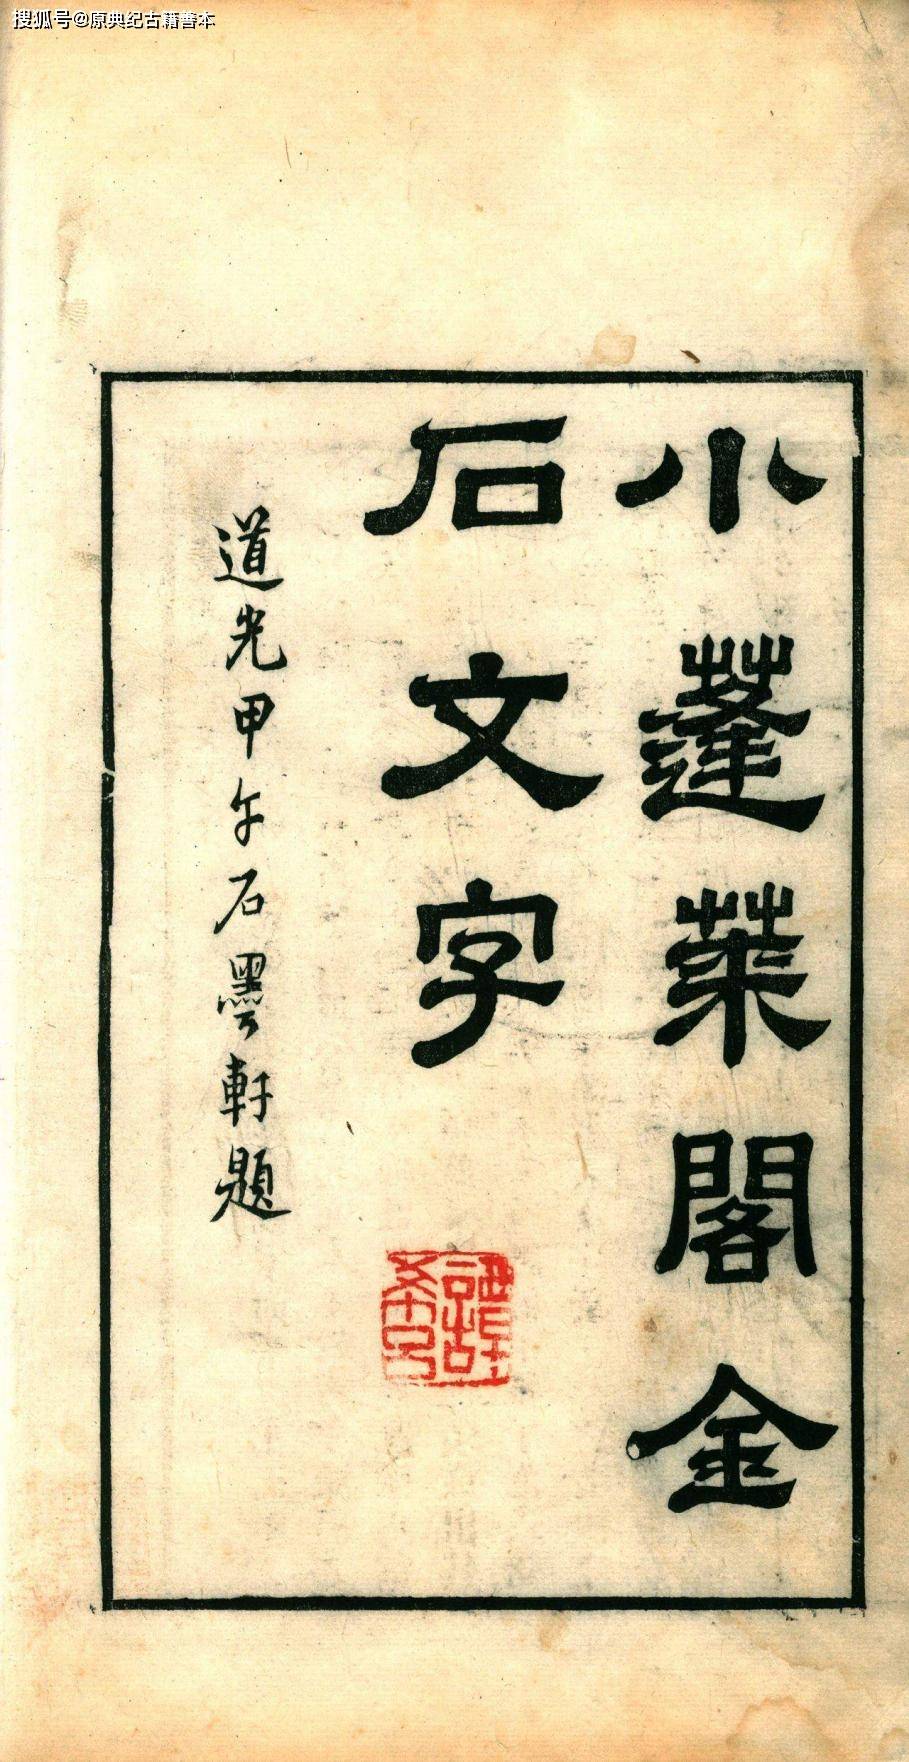 搜狐号@原典纪古籍善本
小蓬萊閣金
石文字
道光甲午石墨軒題